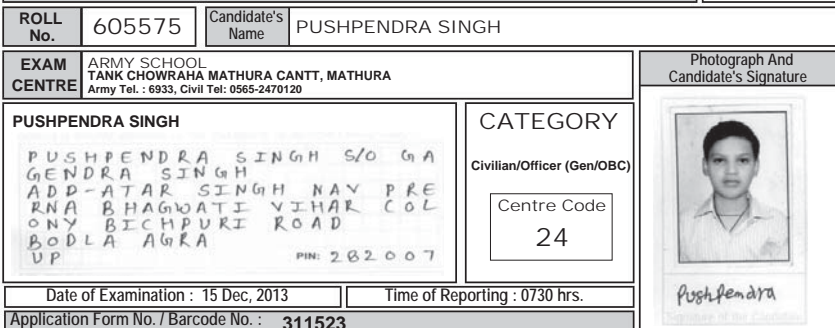 ROLL No.
605575
Candidate's Name
PUSHPENDRA SINGH
EXAM CENTRE
ARMY SCHOOL
TANK CHOWRAHA MATHURA CANTT, MATHURA
Army Tel. : 6933, Civil Tel: 0565-2470120
Photograph And
Candidate's Signature
PUSHPENDRA SINGH
PUSHPENDRA SINGH S/O GA
GENDRA SINGH
ADD-ATAR SINGH NAV PRE
RNA BHAGWATI VIHAR COL
ONY BICHPURI ROAD
BODLA AGRA
UP PIN: 282007
CATEGORY
Civilian/Officer (Gen/OBC)
Centre Code
24
Pushpendra
Signature of the Candidate
Date of Examination : 15 Dec, 2013
Time of Reporting : 0730 hrs.
Application Form No. / Barcode No. : 311523